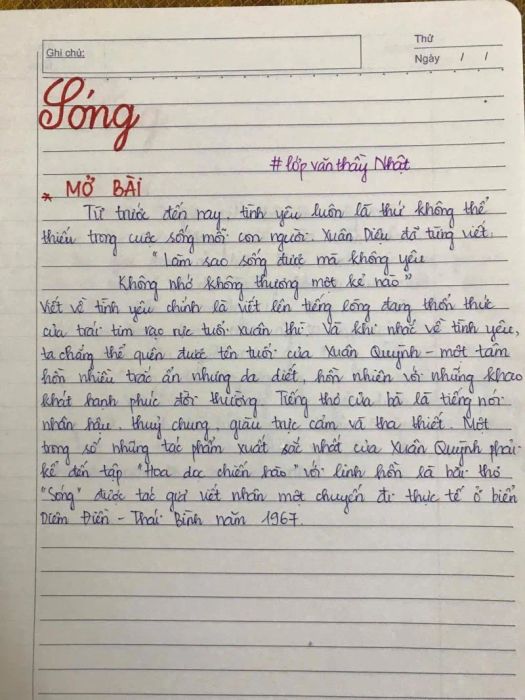 Ghi chú:
Thứ
Ngày / /
Sóng
#lớp văn thầy Nhật
* MỞ BÀI
Từ trước đến nay, tình yêu luôn là thứ không thể
thiếu trong cuộc sống mỗi con người. Xuân Diệu đã từng viết:
"Làm sao sống được mà không yêu
Không nhớ không thương một kẻ nào"
Viết về tình yêu chính là viết lên tiếng lòng đang thổn thức
của trái tim rạo rực tuổi xuân thì. Và khi nhắc về tình yêu,
ta chẳng thể quên được tên tuổi của Xuân Quỳnh - một tâm
hồn nhiều trắc ẩn nhưng da diết, hồn nhiên với những khao
khát hạnh phúc đời thường. Tiếng thơ của bà là tiếng nói
nhân hậu, thuỷ chung, giàu trực cảm và tha thiết. Một
trong số những tác phẩm xuất sắc nhất của Xuân Quỳnh phải
kể đến tập "Hoa dọc chiến hào" với linh hồn là bài thơ
"Sóng" được tác giả viết nhân một chuyến đi thực tế ở biển
Diêm Điền - Thái Bình năm 1967.